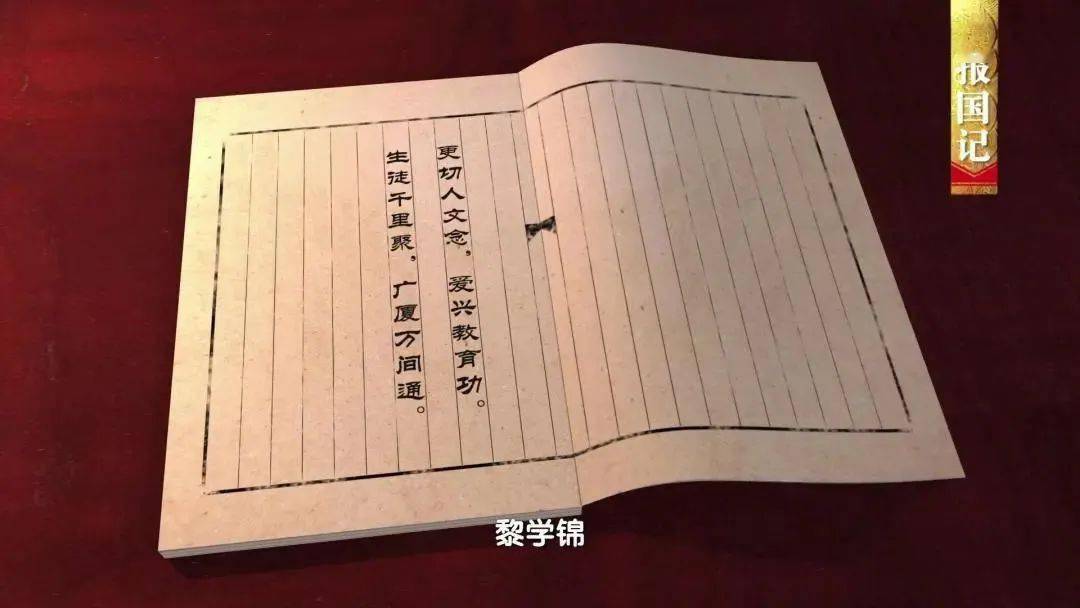 更切人文念，爱兴教育功。
生徒千里聚，广厦万间通。
报国记
黎学锦